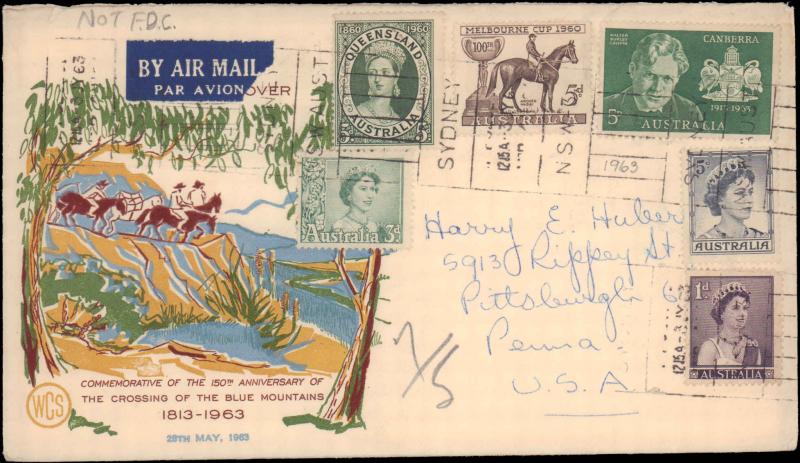 NOT F.D.C.
BY AIR MAIL
PAR AVION
OVER
1860 1960
QUEENSLAND
5D
AUSTRALIA
MELBOURNE CUP 1960
100TH
5D
AUSTRALIA
WALTER BURLEY GRIFFIN
CANBERRA
1913-1963
5D
AUSTRALIA
SYDNEY
N.S.W.
1215A
1963
Australia 3d
5D
AUSTRALIA
1d.
AUSTRALIA
1215A
Harry E. Huber
5913 Rippey St
Pittsburgh 6
Penna.
U.S.A.
7/5
COMMEMORATIVE OF THE 150TH ANNIVERSARY OF
THE CROSSING OF THE BLUE MOUNTAINS
1813-1963
28TH MAY, 1963
WCS